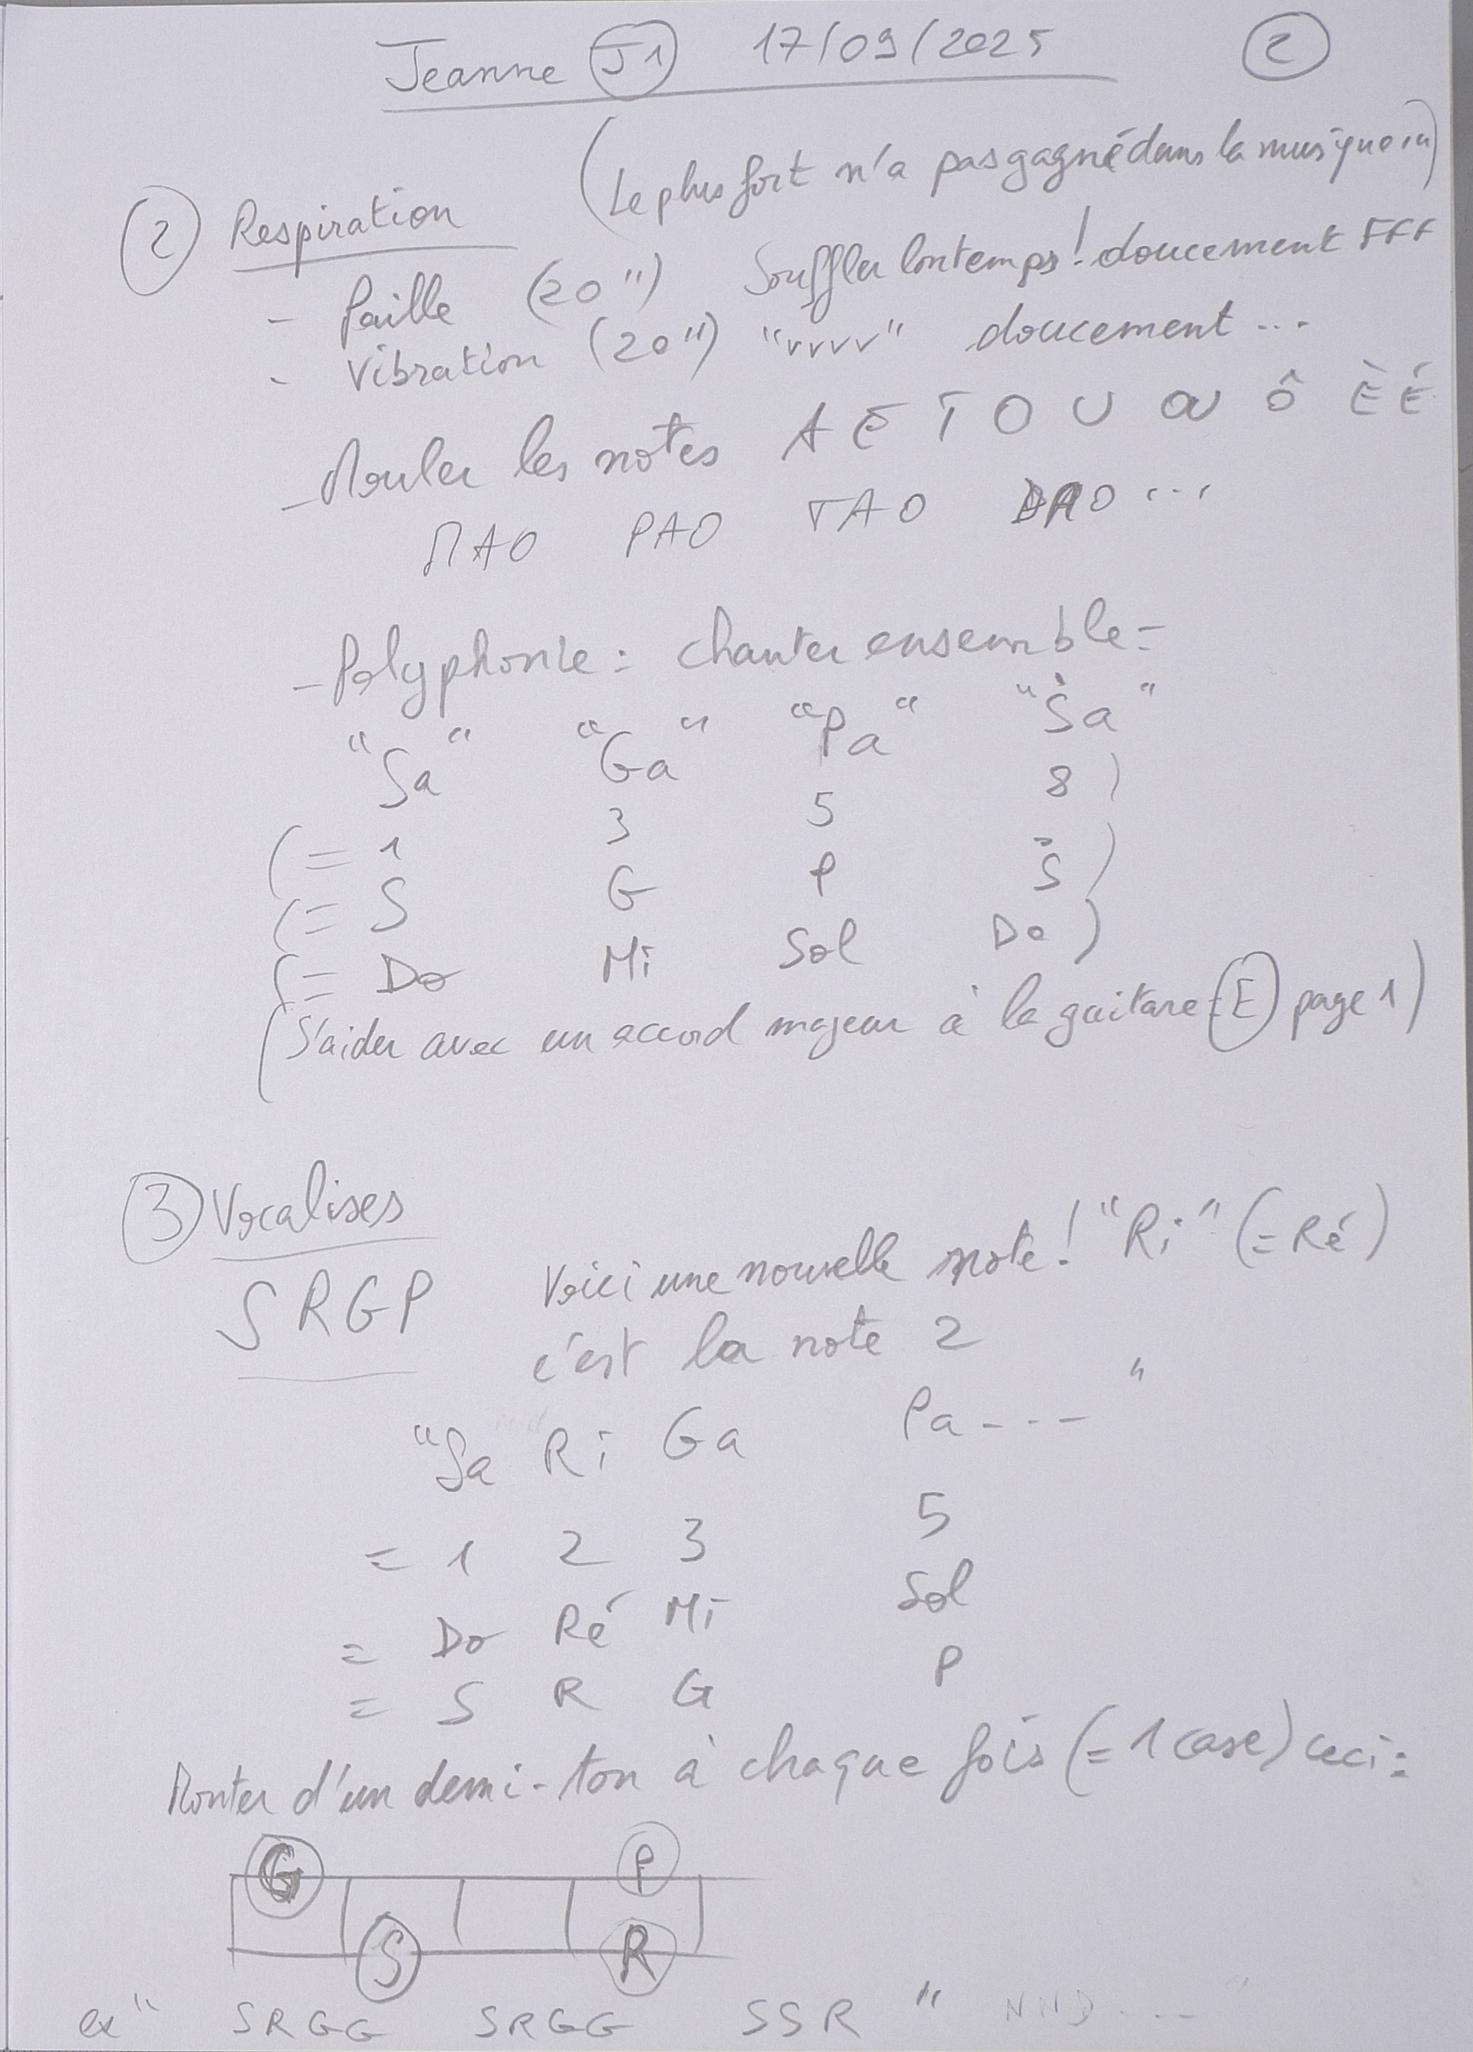 Jeanne J1 17/09/2025 2
(Le plus fort n'a pas gagné dans la musique...)
2 Respiration
- Paille (20") Souffler lontemps! doucement FFF
- Vibration (20") "vvvv" doucement ...
- Mouler les notes A E I O U OU Ô È É
MAO PAO TAO DAO ...
- Polyphonie : chanter ensemble -
"Sa" "Ga" "Pa" "Ṡa"
(= 1 3 5 8)
(= S G P Ṡ)
(= Do Mi Sol Do)
(S'aider avec un accord majeur à la guitare : E page 1)
3 Vocalises
SRGP Voici une nouvelle note! "Ri" (= Ré)
c'est la note 2
"Sa Ri Ga Pa - - - "
= 1 2 3 5
= Do Ré Mi Sol
= S R G P
Monter d'un demi-ton à chaque fois (= 1 case) ceci :
G P
S R
ex " SRGG SRGG SSR " NND - - - "